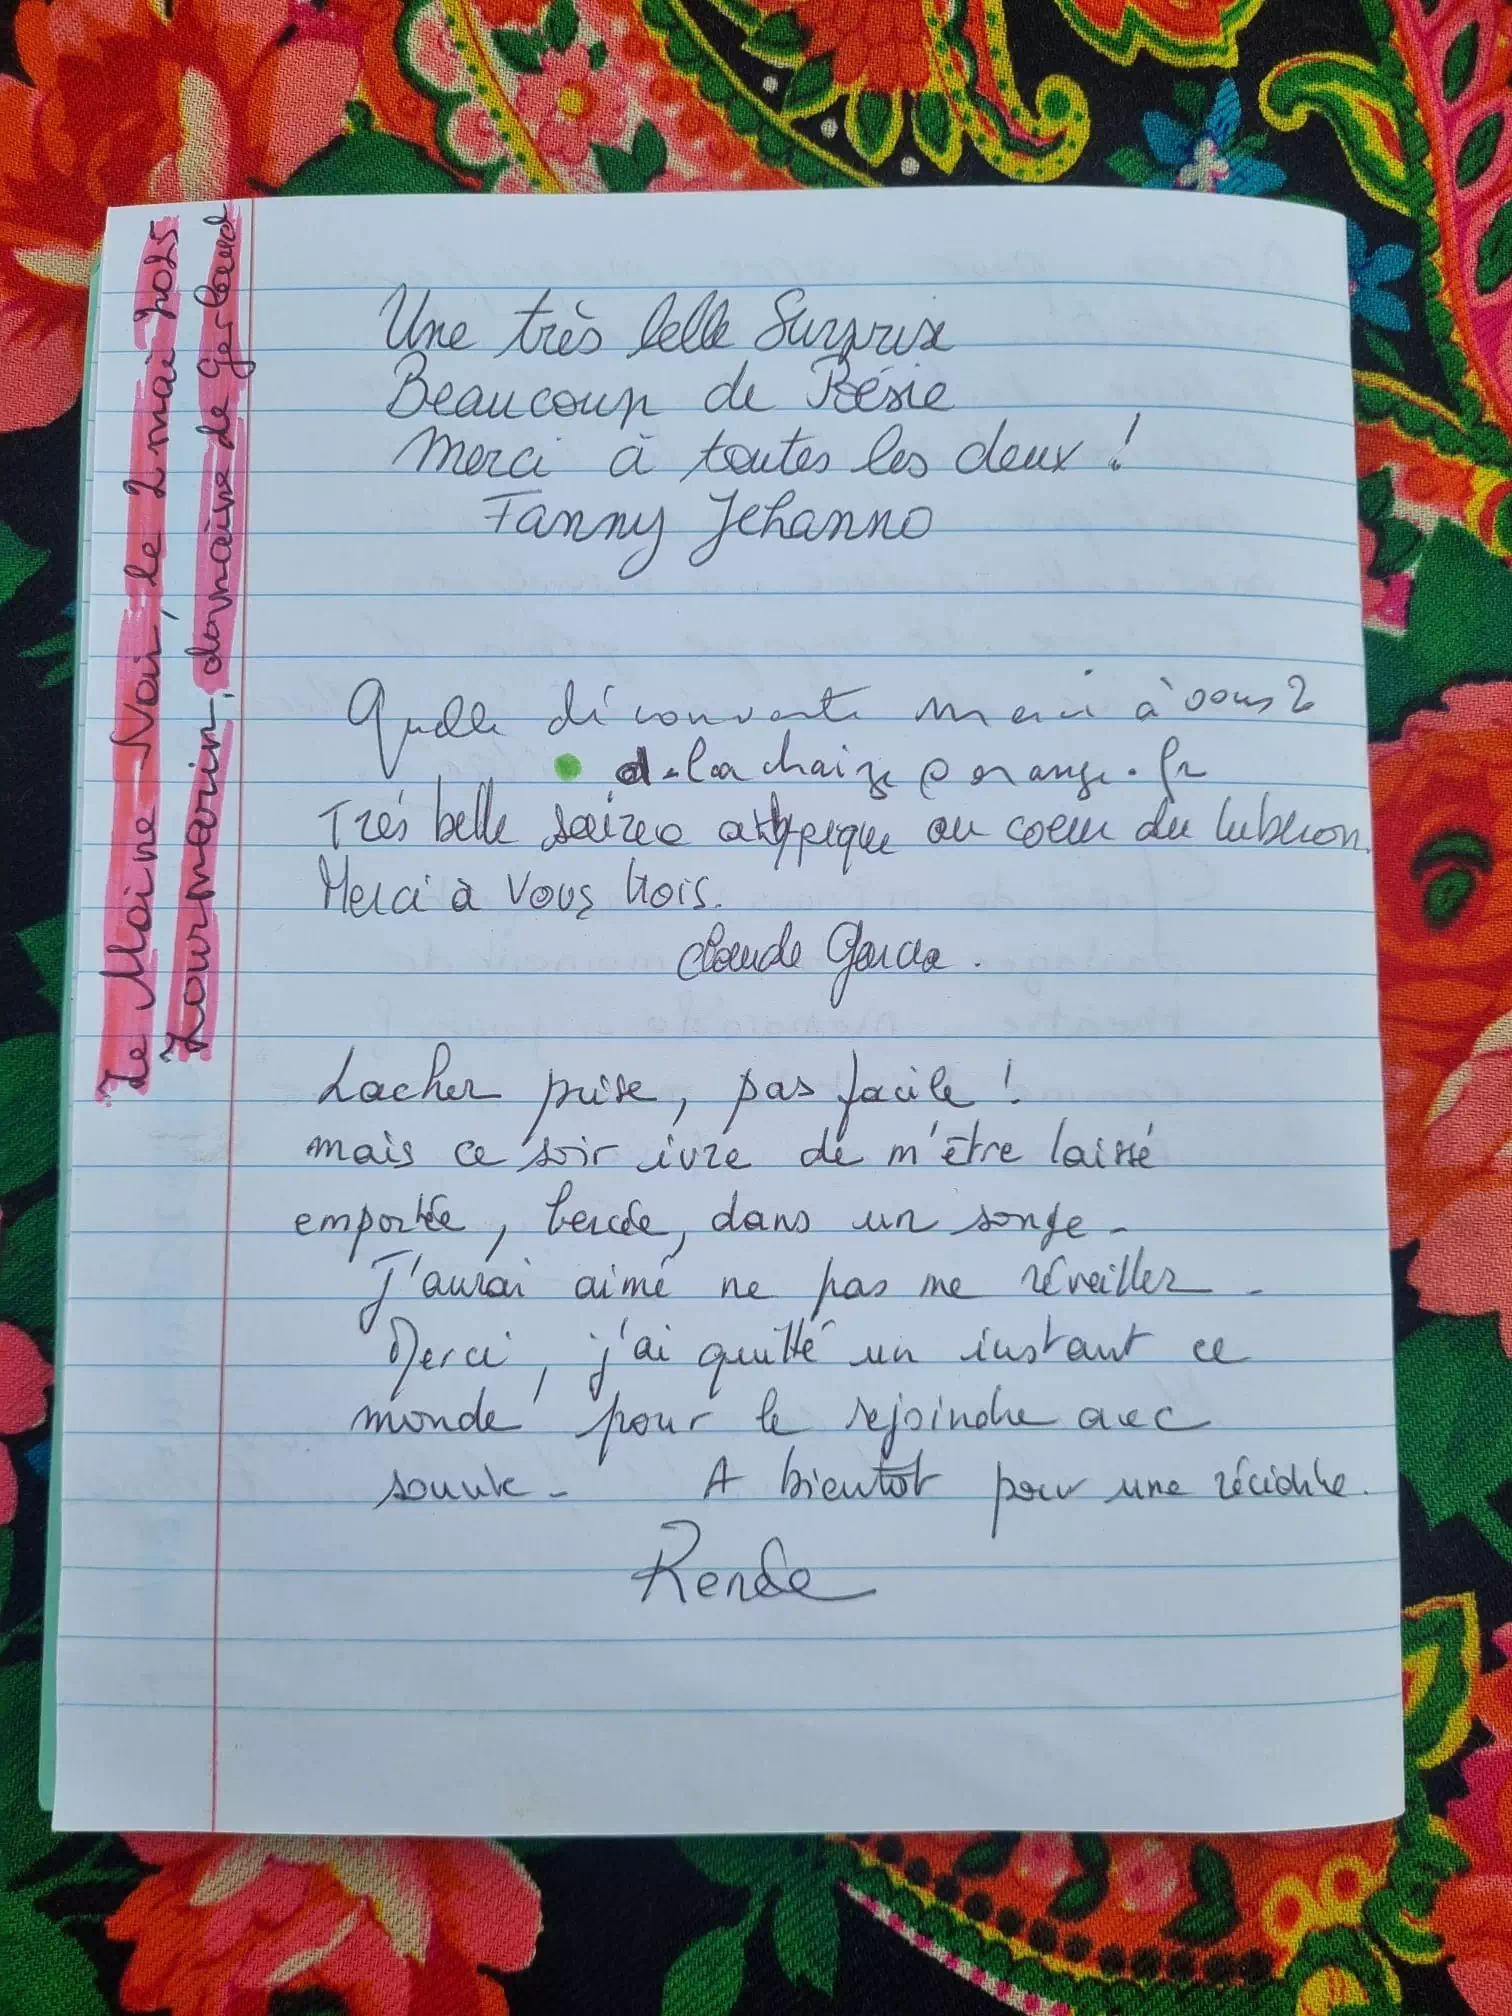 Le Moine Noir, le 2 mai 2025
Lourmarin, domaine de Gerbaud
Une très belle Surprise
Beaucoup de Poésie
Merci à toutes les deux !
Fanny Jehanno
Quelle découverte merci à vous 2
d.lachaize@orange.fr
Très belle soirée atypique au coeur du luberon.
Merci à vous trois.
Claude Garcia.
Lacher prise, pas facile !
mais ce soir ivre de m'être laissé
emportée, bercée, dans un songe -
J'aurai aimé ne pas me réveiller -
Merci, j'ai quitté un instant ce
monde pour le rejoindre avec
- A bientôt pour une récidive.
Renée